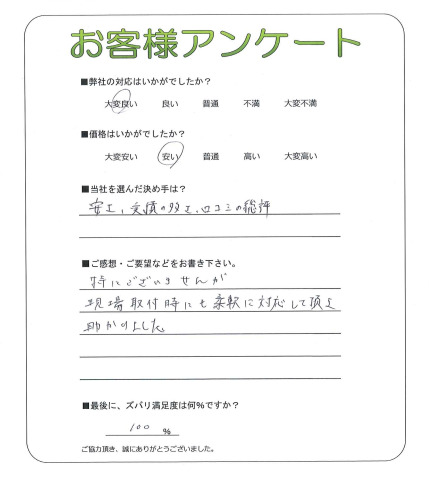 お客様アンケート
■弊社の対応はいかがでしたか？
大変良い 良い 普通 不満 大変不満
■価格はいかがでしたか？
大変安い 安い 普通 高い 大変高い
■当社を選んだ決め手は？
安さ、実績の多さ、口コミの総評
■ご感想・ご要望などをお書き下さい。
特にございませんが
現場取付時にも柔軟に対応して頂き
助かりました
■最後に、ズバリ満足度は何％ですか？
100 ％
ご協力頂き、誠にありがとうございました。